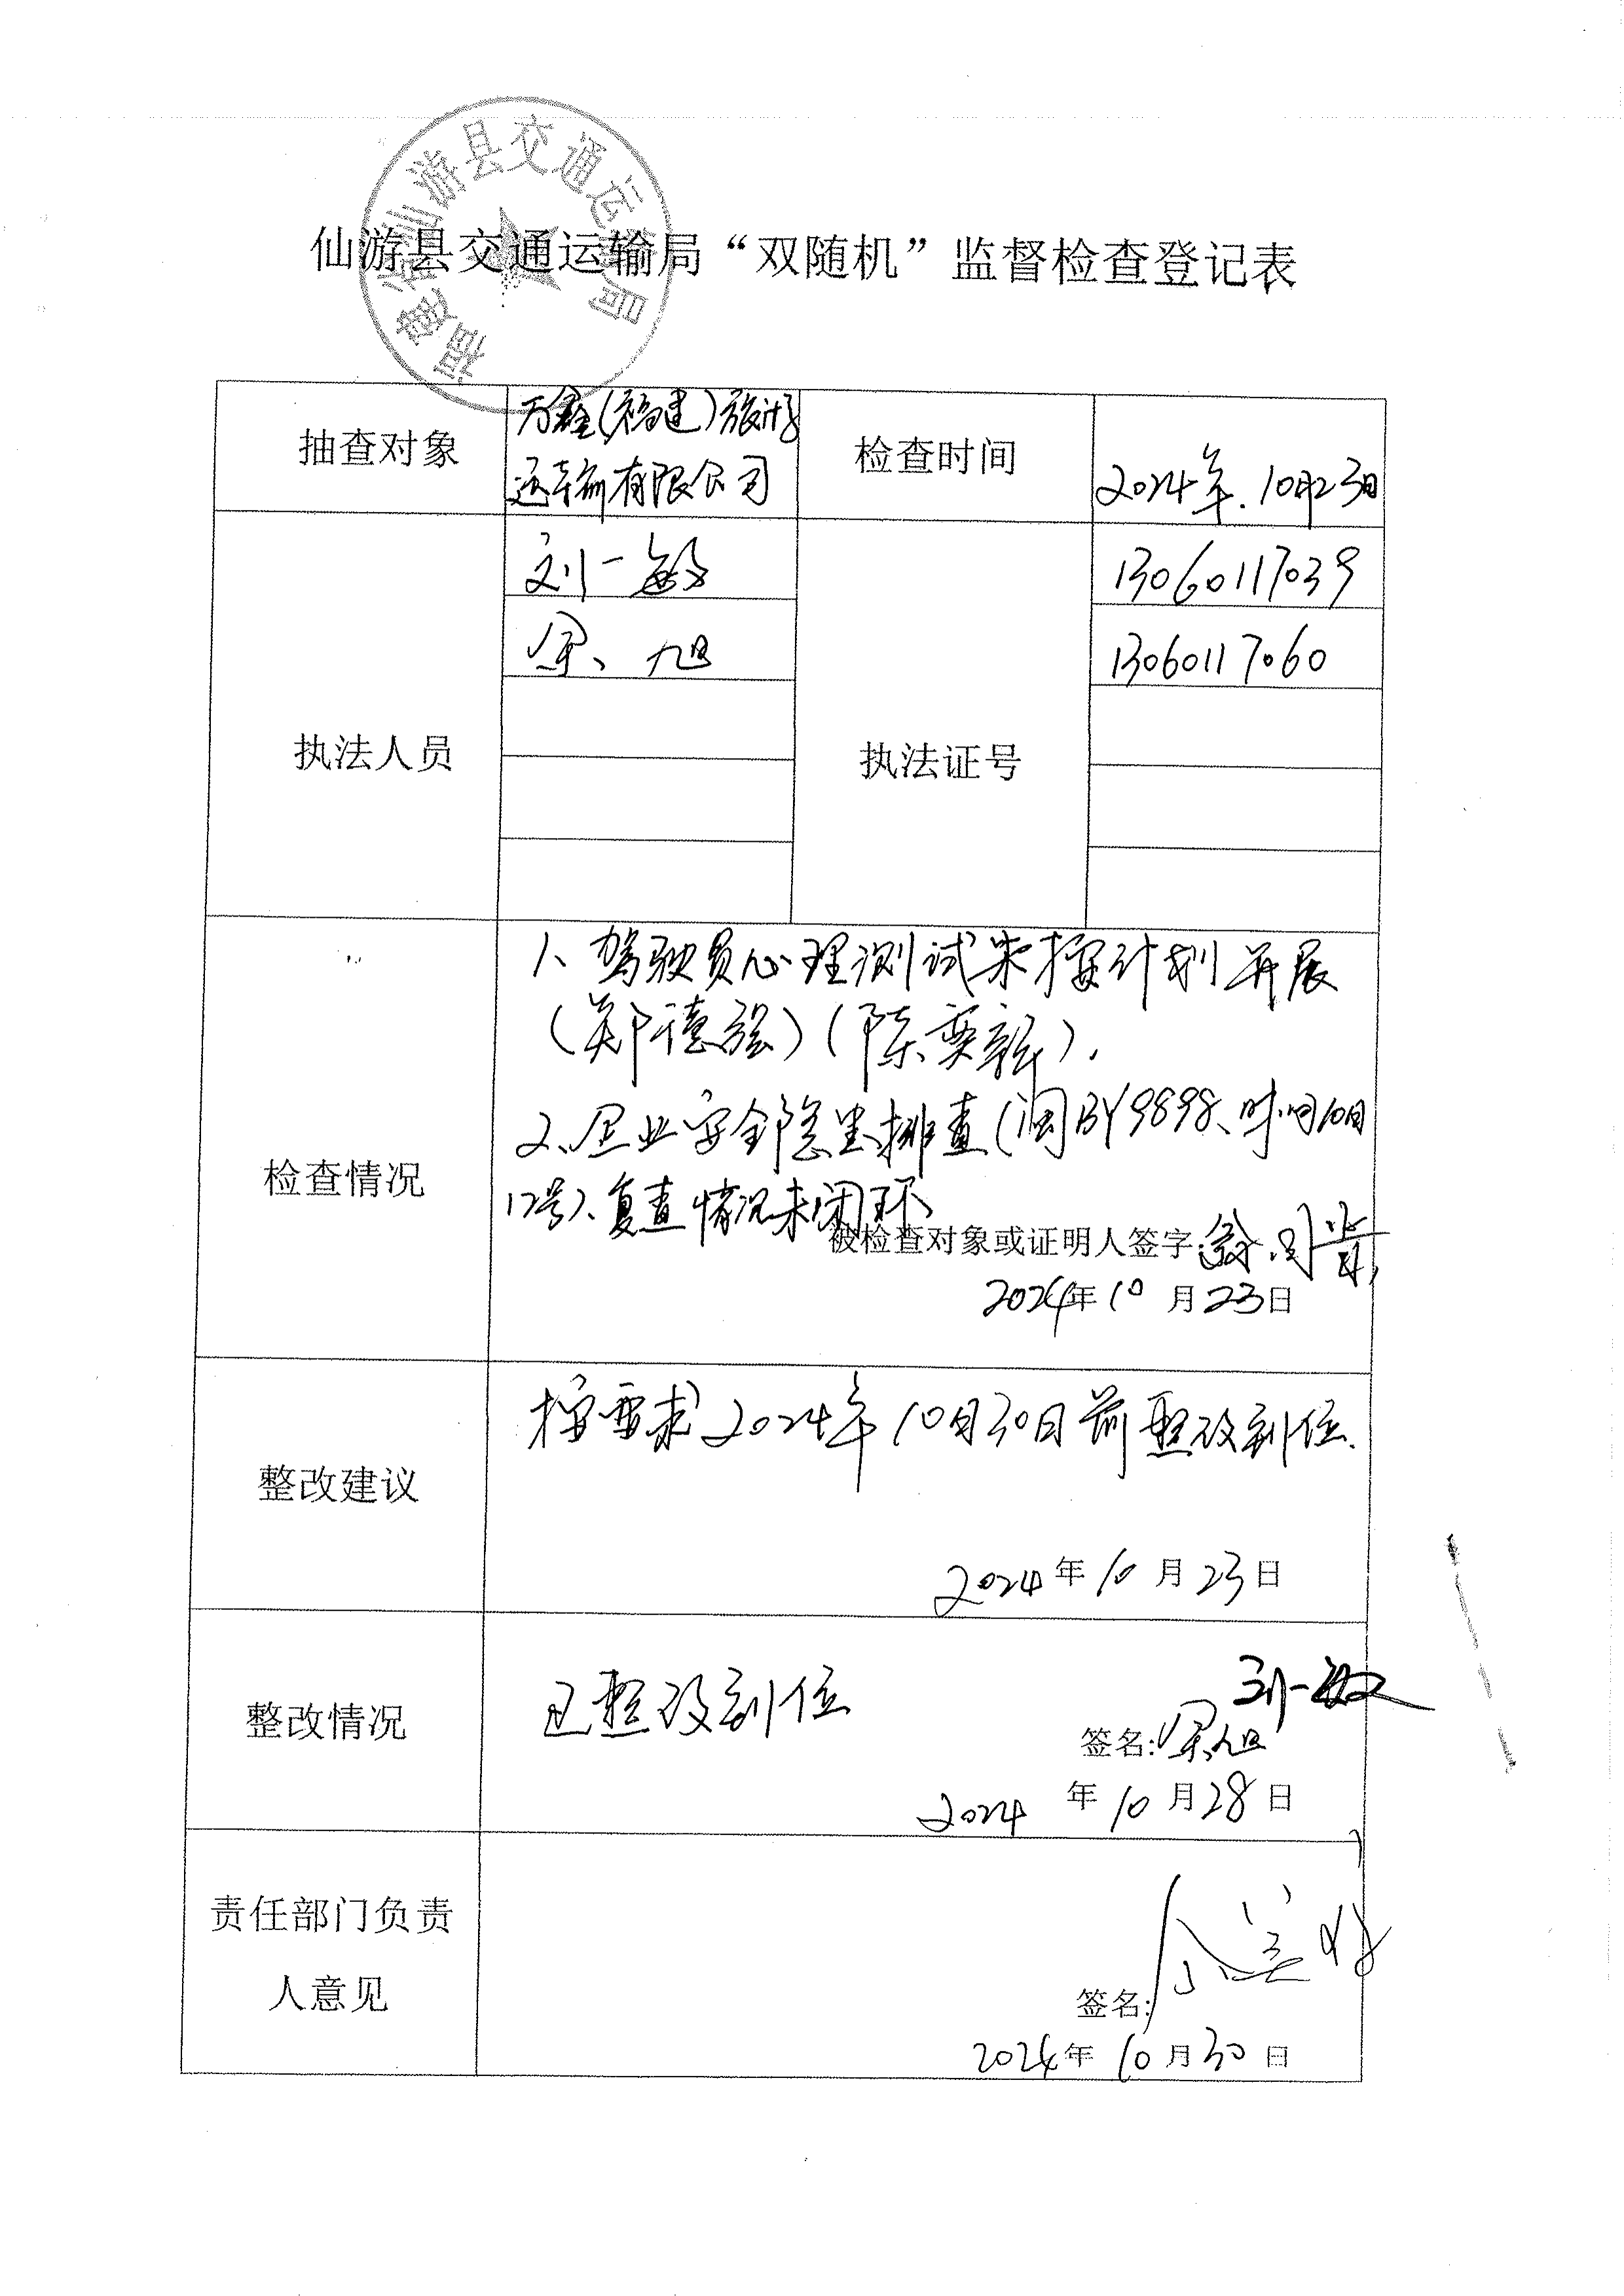 福建省仙游县交通运输局
仙游县交通运输局“双随机”监督检查登记表
抽查对象
万鑫(福建)旅游
运输有限公司
检查时间
2024年.10月23日
执法人员
刘一敏
梁旭
执法证号
13060117039
13060117060
检查情况
1、驾驶员心理测试未按计划开展
(郑德强)(陈奕新).
2、企业安全隐患排查(闽BY9898、时间10月
17号)、复查情况未闭环、
被检查对象或证明人签字:
2024年10月23日
整改建议
按要求2024年10月30日前整改到位.
2024年10月23日
整改情况
已整改到位
刘一敏
签名:梁旭
2024年10月28日
责任部门负责
人意见
签名:
2024年10月30日